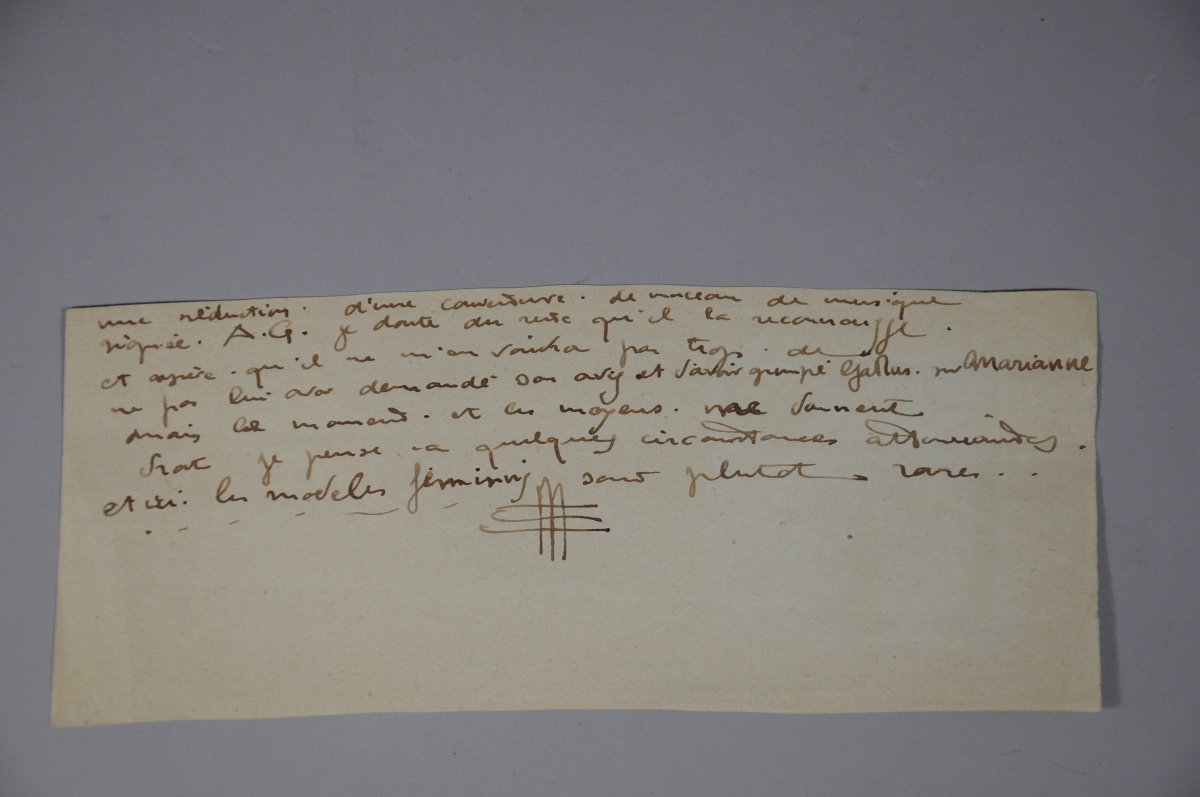 une réduction. d'une couverture. de morceau de musique
signée. A.G. je doute du reste qu'il la reconnaisse.
et espère. qu'il ne m'en voudra pas trop. de
ne pas lui avoir demandé son avis et d'avoir grimpé Gallus. sur Marianne
mais le moment. et les moyens. me donnent
droit je pense a quelques circonstances attenuandes.
et ici. les modeles féminins sont plutot rares...